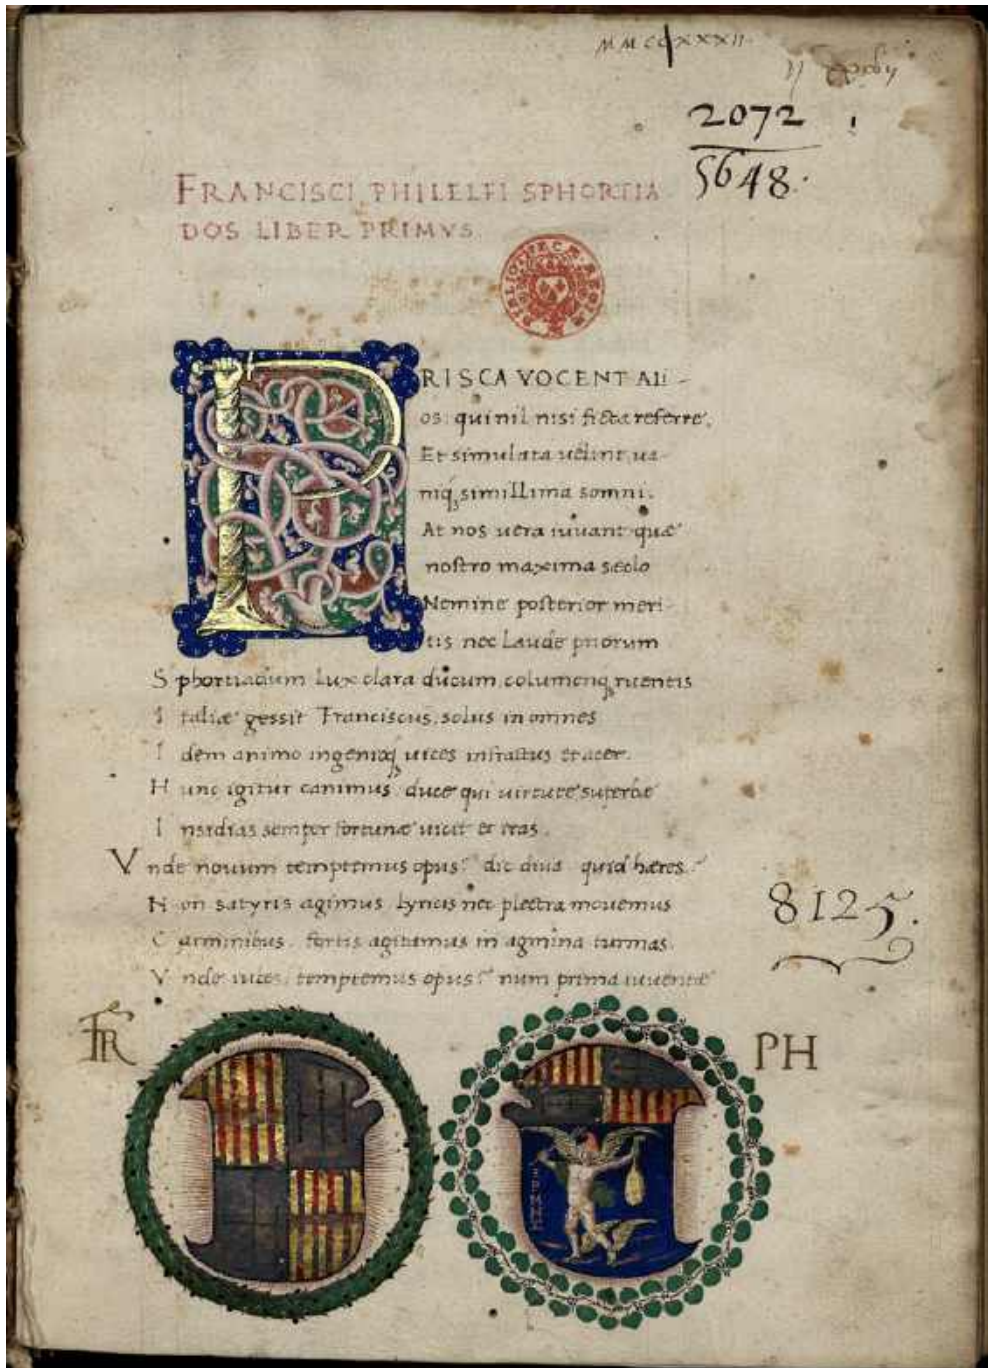 MMCCXXXII
2072
5648.
FRANCISCI PHILELFI SPHORTIA
DOS LIBER PRIMVS
BIBLIOTHECÆ REGIÆ
PRISCA VOCENT Ali-
os: qui nil nisi ficta referre,
Et simulata uelint, ua-
niq; simillima somni.
At nos uera iuuant quæ
nostro maxima sæclo
Nemine posterior meri
tis nec laude priorum
Sphortiadum lux clara ducum, columenq; ruentis
Italiæ gessit Franciscus, solus in omnes
Idem animo ingenioq; uices infractus et acer.
Hunc igitur canimus duce qui uirtute superbæ
Insidias semper fortunæ uicit et iras.
Vnde nouum temptemus opus? dic diua quid hæres?
Non satyris agimus lyricis nec plectra mouemus
Carminibus. fortis agitamus in agmina turmas.
Vnde uices temptemus opus? num prima iuuentæ
8125.
FR
PH
ΕΡΜΗΣ